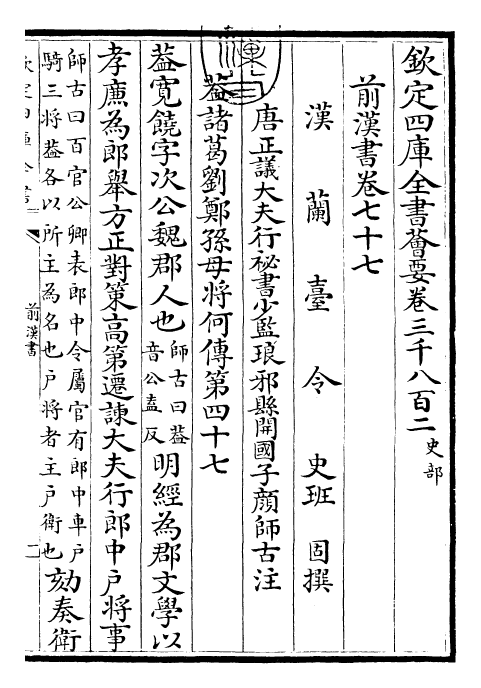 欽定四庫全書薈要卷三千八百二 史部
前漢書卷七十七
漢蘭臺令史班固撰
唐正議大夫行祕書少監琅邪縣開國子顏師古注
葢諸葛劉鄭孫毋將何傳第四十七
葢寛饒字次公魏郡人也師古曰葢音公盍反明經為郡文學以
孝亷為郎舉方正對策高第遷諫大夫行郎中户將事
師古曰百官公卿表郎中令屬官有郎中車户騎三將葢各以所主為名也户將者主户衛也劾奏衛
前漢書
一